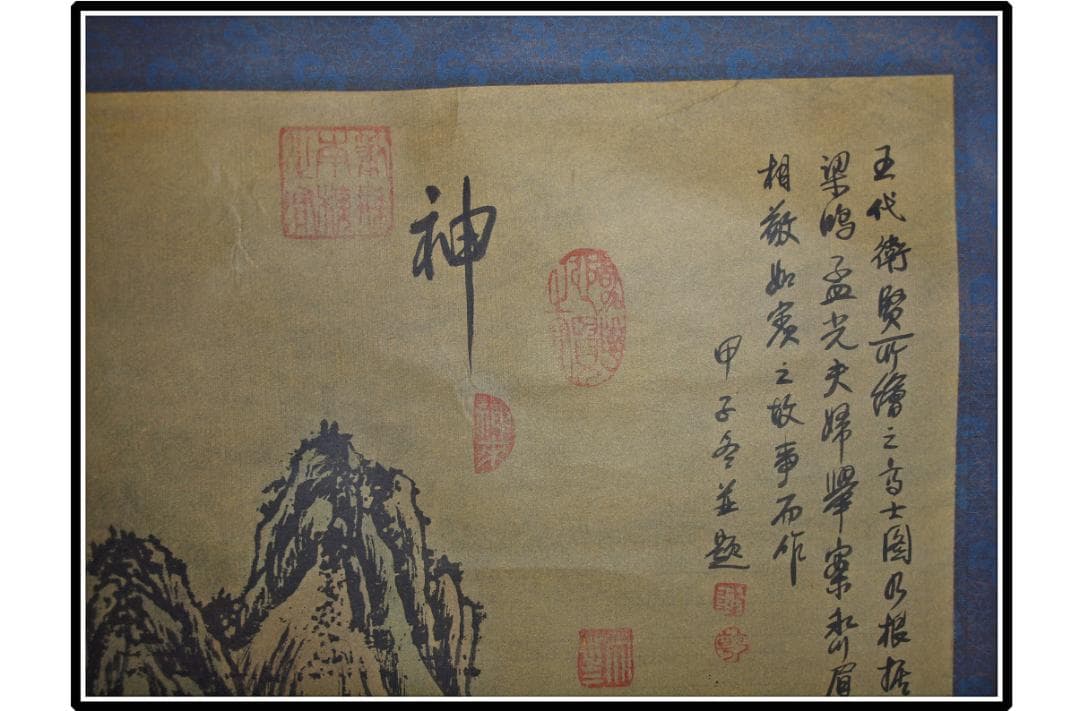 五代衛賢所繪之高士圖乃根据
梁鴻孟光夫婦舉案齊眉
相敬如賓之故事而作
甲子冬並題
神